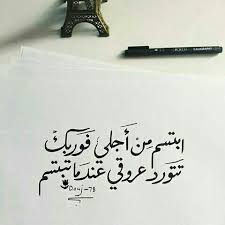 ابتسم مِنْ أجلي فوربك
تتورد عروقي عندما تبتسم